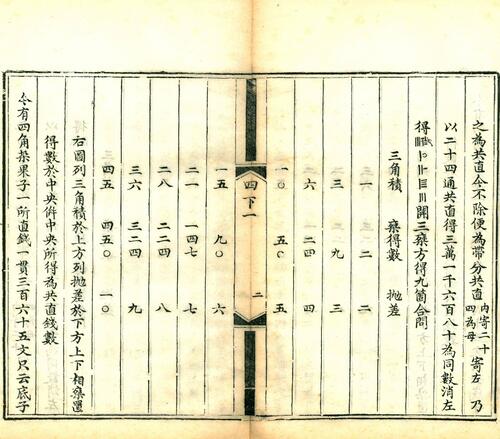 之為共直今不除便為帶分共直內寄二十四為母寄左乃
以二十四通共直得三萬一千六百八十為同數消左
得開三乘方得九箇合問
三角積 乘得數 拋差
一 二 二
三 九 三
六 二四 四
一〇 五〇 五
四下一 二
一五 九〇 六
二一 一四七 七
二八 二二四 八
三六 三二四 九
四五 四五〇 一〇
右圖列三角積於上方列拋差於下方上下相乘置
得數於中央併中央所得為共直錢數
今有四角垜果子一所直錢一貫三百六十五文只云底子